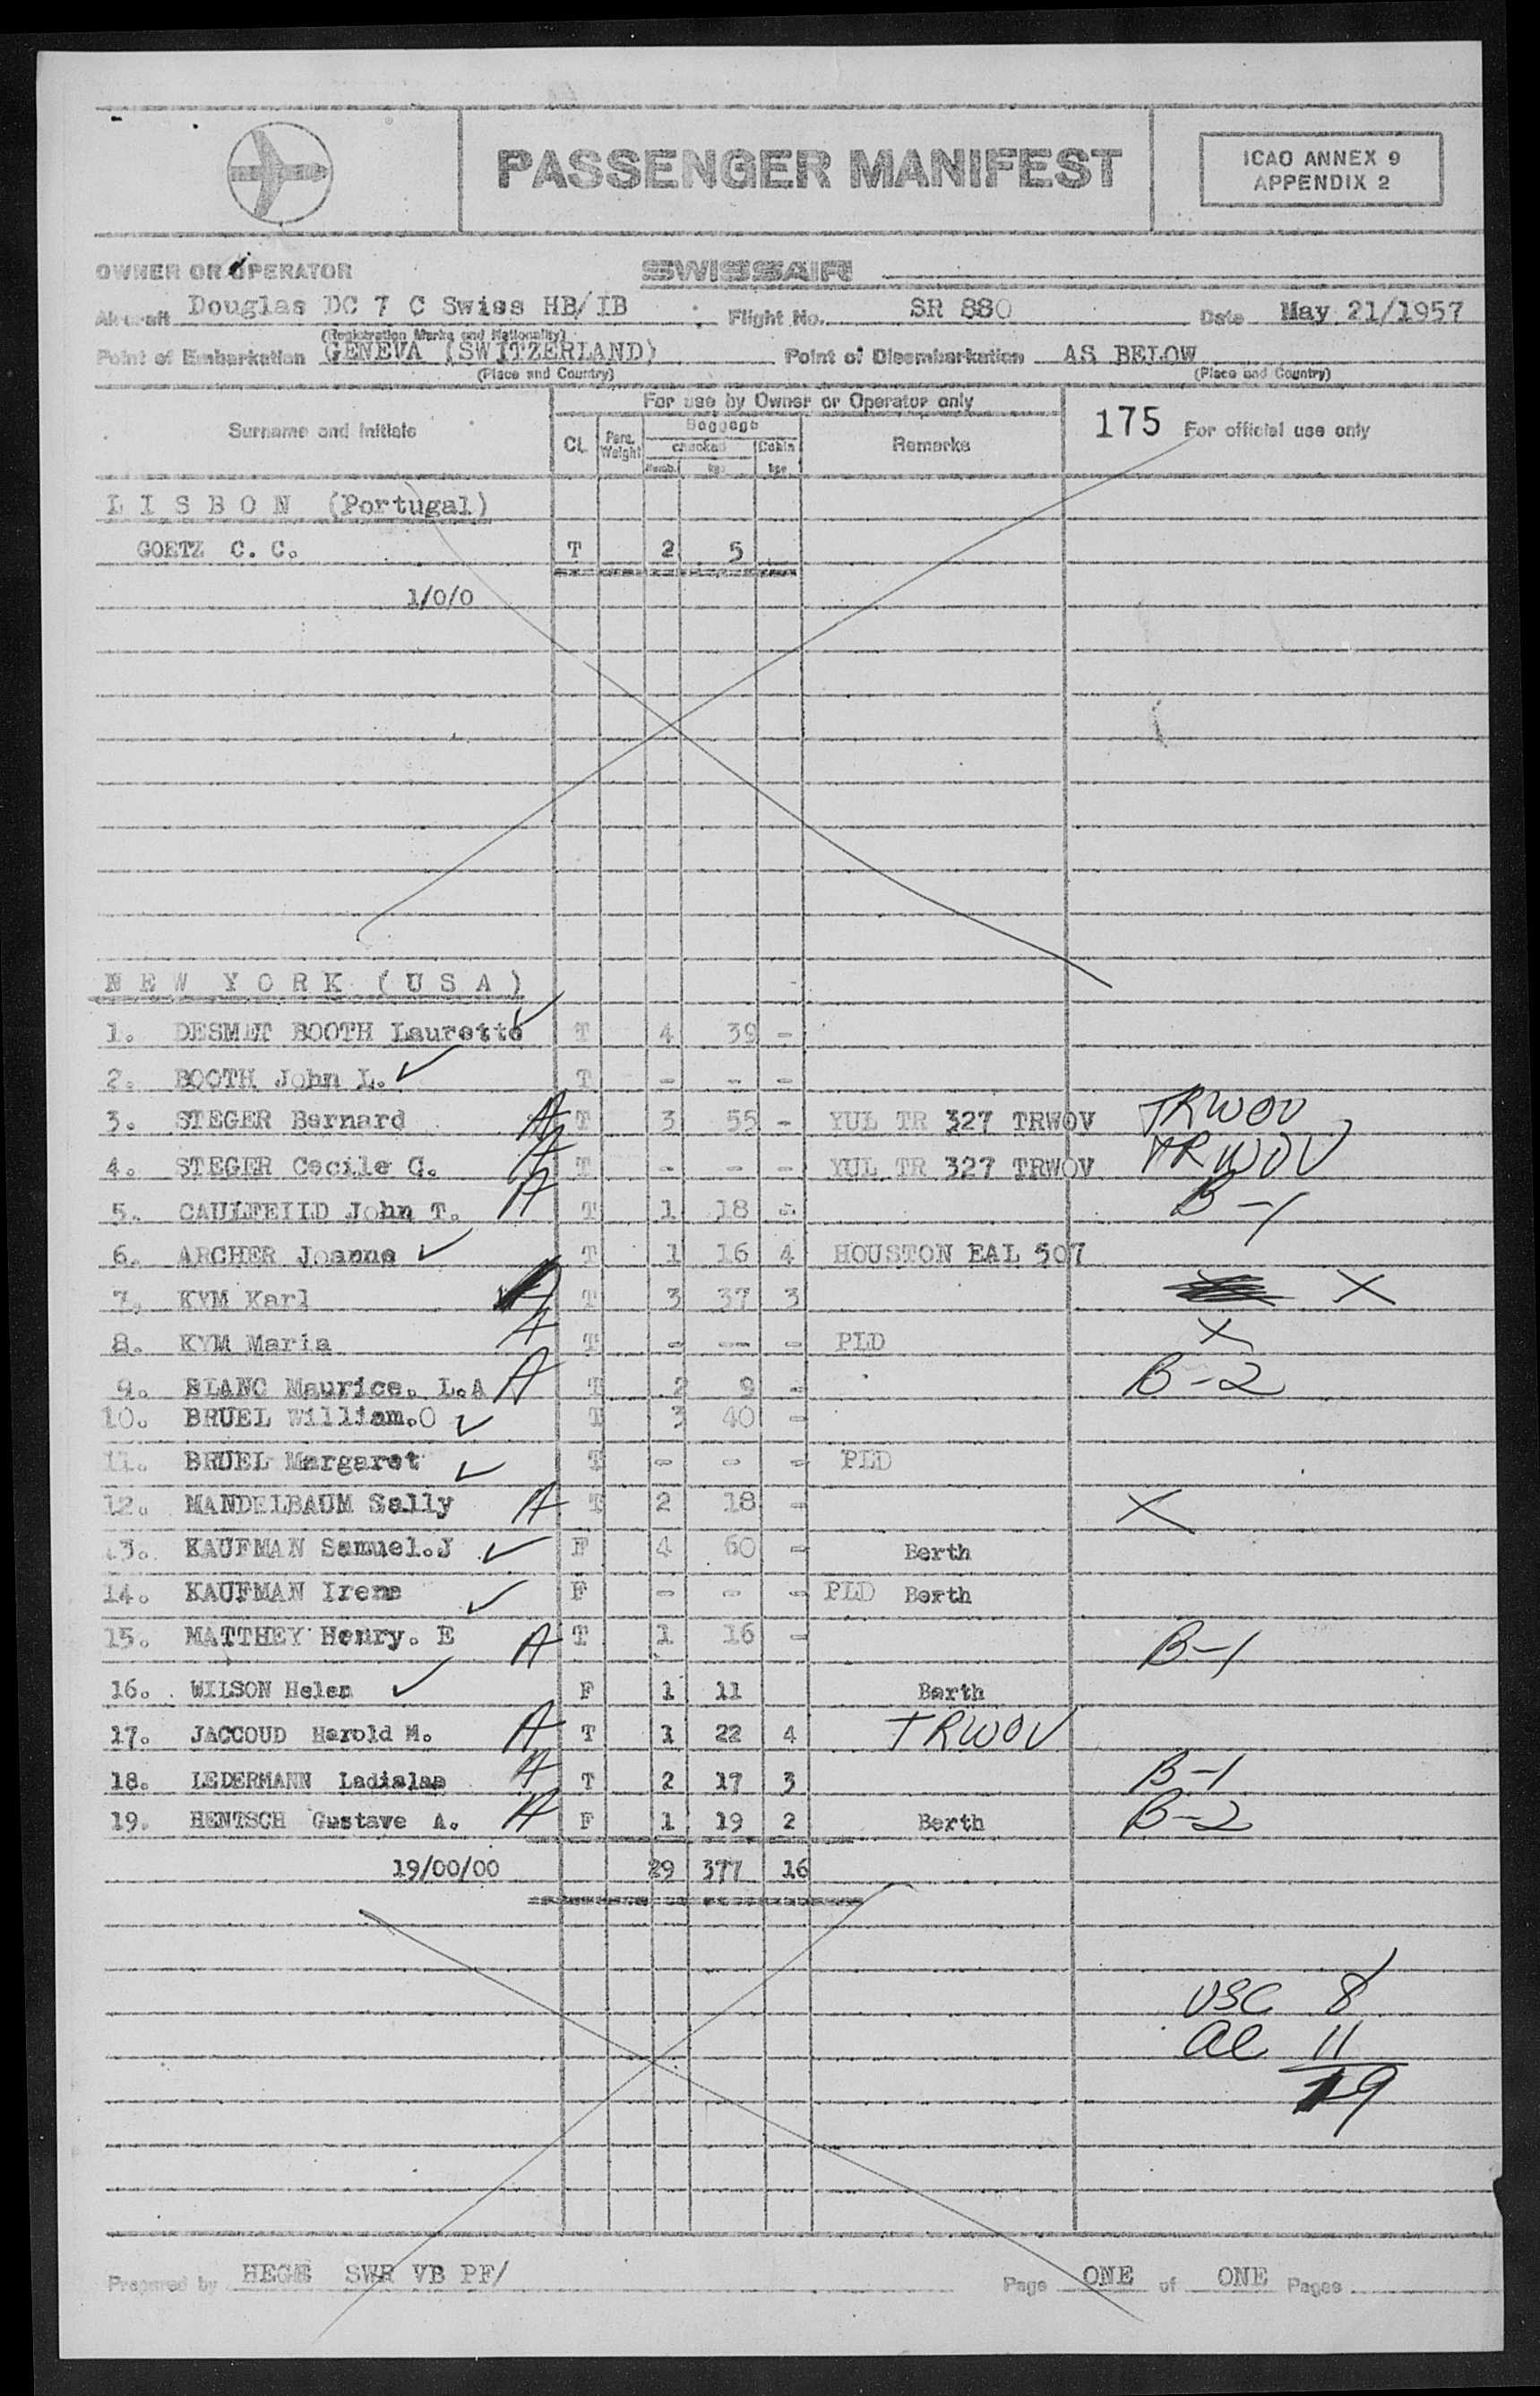 PASSENGER MANIFEST
ICAO ANNEX 9
APPENDIX 2
OWNER OR OPERATOR SWISSAIR
Aircraft Douglas DC 7 C Swiss HB/IB Flight No. SR 880 Date May 21/1957
(Registration Marks and Nationality)
Point of Embarkation GENEVA (SWITZERLAND) Point of Disembarkation AS BELOW
(Place and Country) (Place and Country)
For use by Owner or Operator only
Surname and Initials Cl. Pers. Weight Baggage Remarks 175 For official use only
checked Cabin
Numb. kgs kgs
L I S B O N (Portugal)
GOETZ C. C. T 2 5
1/0/0
N E W Y O R K ( U S A )
1. DESMET BOOTH Laurette ✓ T 4 39 -
2. BOOTH John L. ✓ T - - -
3. STEGER Bernard A T 3 55 - YUL TR 327 TRWOV TRWOV
4. STEGER Cecile G. A T - - - YUL TR 327 TRWOV TRWOV
5. CAULFEILD John T. A T 1 18 - B-1
6. ARCHER Joanne ✓ T 1 16 4 HOUSTON EAL 507
7. KYM Karl A T 3 37 3 X
8. KYM Maria A T - -- - PLD X
9. BLANC Maurice. L.A A T 2 9 - B-2
10. BRUEL William.O ✓ T 3 40 -
11. BRUEL Margaret ✓ T - - - PLD
12. MANDELBAUM Sally A T 2 18 - X
13. KAUFMAN Samuel.J ✓ F 4 60 - Berth
14. KAUFMAN Irene ✓ F - - - PLD Berth
15. MATTHEY Henry. E A T 1 16 - B-1
16. WILSON Helen ✓ F 1 11 Berth
17. JACCOUD Harold M. A T 1 22 4 TRWOV
18. LEDERMANN Ladislas A T 2 17 3 B-1
19. HENTSCH Gustave A. A F 1 19 2 Berth B-2
19/00/00 29 377 16
USC 8
Al 11
19
Prepared by HEGE SWR VB PF/ Page ONE of ONE Pages